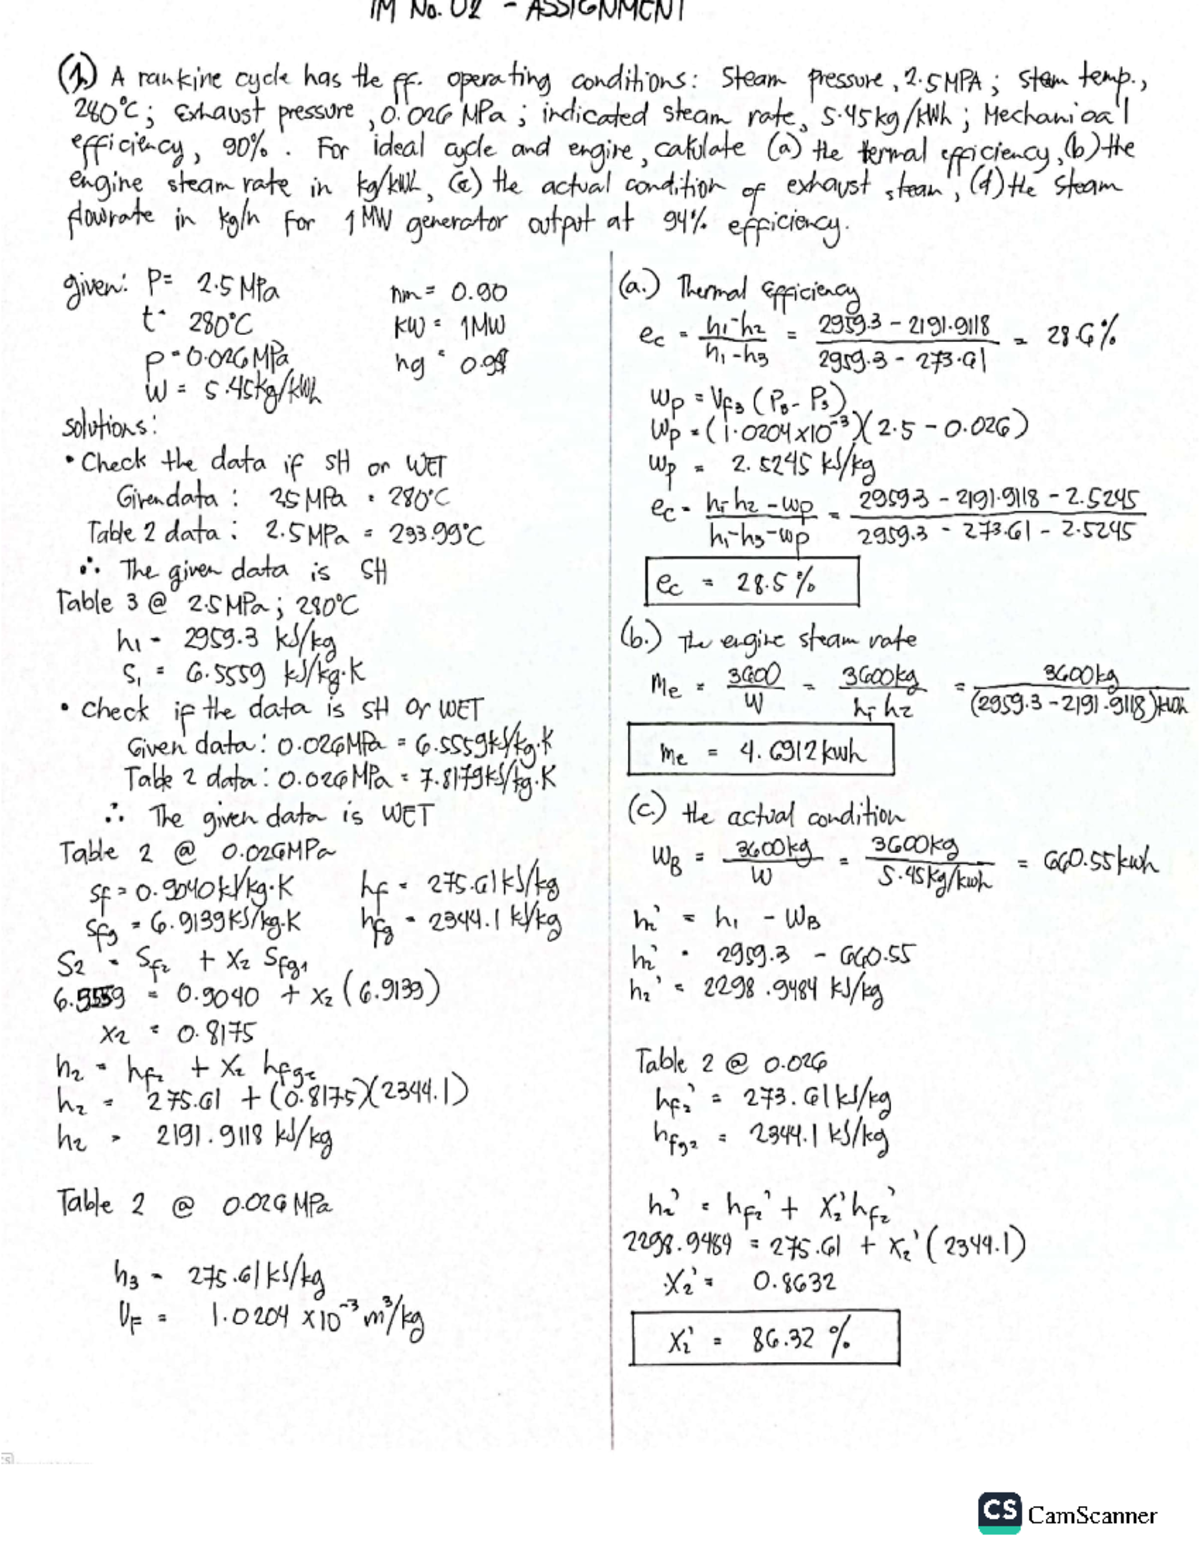 IM No. 02 - ASSIGNMENT
(1.) A rankine cycle has the ff. operating conditions: Steam pressure, 2.5MPA; stem temp.,
280°C; Exhaust pressure, 0.026 MPa; indicated steam rate, 5.45kg/kWh; Mechanical
efficiency, 90%. For ideal cycle and engine, calculate (a) the termal efficiency, (b) the
engine steam rate in kg/kWh, (c) the actual condition of exhaust steam, (d) the steam
flowrate in kg/h for 1MW generator output at 94% efficiency.
given: P= 2.5 MPa nm = 0.90
t= 280°C kW = 1MW
P= 0.026 MPa ng = 0.94
W = 5.45kg/kWh
solutions:
• Check the data if SH or WET
Given data: 25 MPa = 280°C
Table 2 data: 2.5MPa = 233.99°C
∴ The given data is SH
Table 3 @ 2.5MPa; 280°C
h1 = 2959.3 kJ/kg
S1 = 6.5559 kJ/kg·K
• check if the data is SH or WET
Given data: 0.026MPa = 6.5559kJ/kg·K
Table 2 data: 0.026MPa = 7.8179kJ/kg·K
∴ The given data is WET
Table 2 @ 0.026MPa
Sf = 0.9040kJ/kg·K hf = 275.61kJ/kg
Sfg = 6.9139KJ/kg·K hfg = 2344.1 kJ/kg
S2 = Sf2 + X2 Sfg1
6.5559 = 0.9040 + X2 (6.9139)
X2 = 0.8175
h2 = hf2 + X2 hfg2
h2 = 275.61 + (0.8175)(2344.1)
h2 = 2191.9118 kJ/kg
Table 2 @ 0.026 MPa
h3 = 275.61kJ/kg
Vf = 1.0204 x10⁻³ m³/kg
(a.) Thermal Efficiency
ec = h1-h2 / h1-h3 = 2959.3 - 2191.9118 / 2959.3 - 273.61 = 28.6%
Wp = Vf3 (PB - P3)
Wp = (1.0204x10⁻³)(2.5 - 0.026)
Wp = 2.5245 kJ/kg
ec = h1-h2-wp / h1-h3-wp = 2959.3 - 2191.9118 - 2.5245 / 2959.3 - 273.61 - 2.5245
ec = 28.5%
(b.) The engine steam rate
Me = 3600 / W = 3600kg / h1-h2 = 3600kg / (2959.3 - 2191.9118)kWh
me = 4.6912 kwh
(c.) the actual condition
WB = 3600kg / W = 3600kg / 5.45kg/kwh = 660.55kwh
h2' = h1 - WB
h2' = 2959.3 - 660.55
h2' = 2298.9484 kJ/kg
Table 2 @ 0.026
hf2' = 273.61kJ/kg
hfg2 = 2344.1 kJ/kg
h2' = hf2' + X2'hf2'
2298.9484 = 275.61 + X2' (2344.1)
X2' = 0.8632
X2' = 86.32 %
CS CamScanner